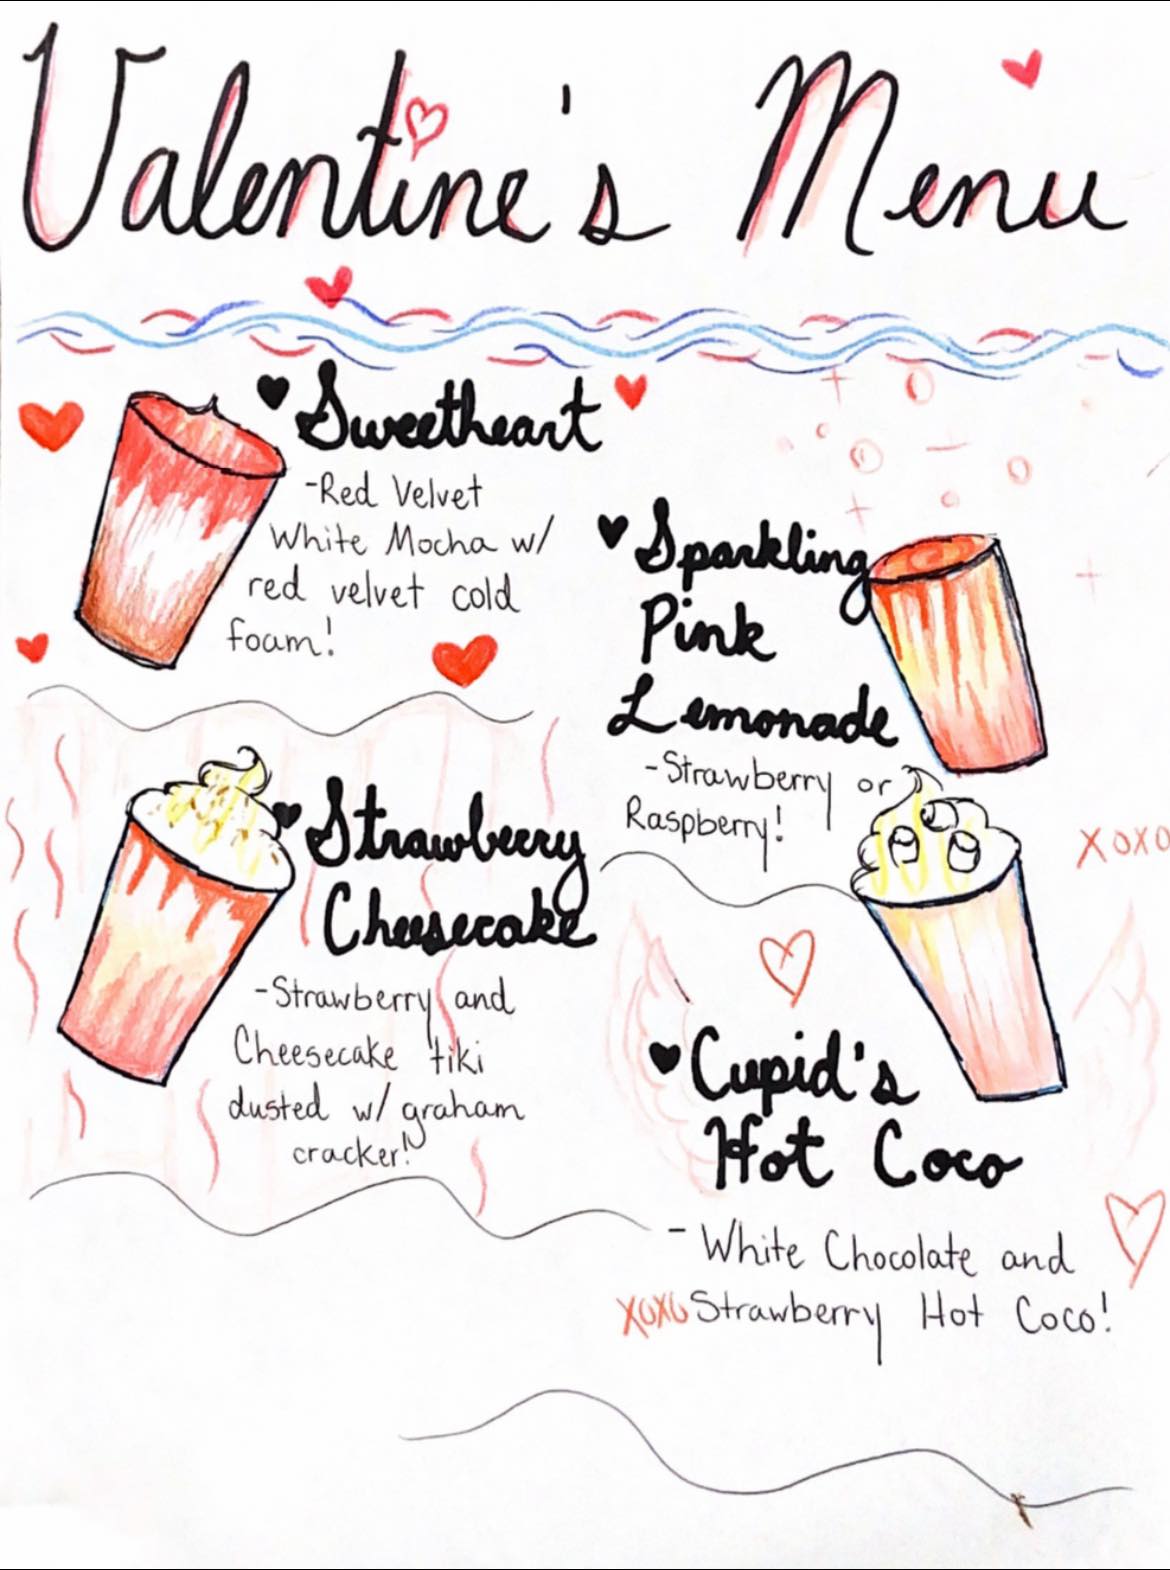 Valentine's Menu
Sweetheart
-Red Velvet
White Mocha w/
red velvet cold
foam!
Sparkling
Pink
Lemonade
-Strawberry or
Raspberry!
Strawberry
Cheesecake
-Strawberry and
Cheesecake tiki
dusted w/ graham
cracker!
XOXO
Cupid's
Hot Coco
- White Chocolate and
XOXO Strawberry Hot Coco!